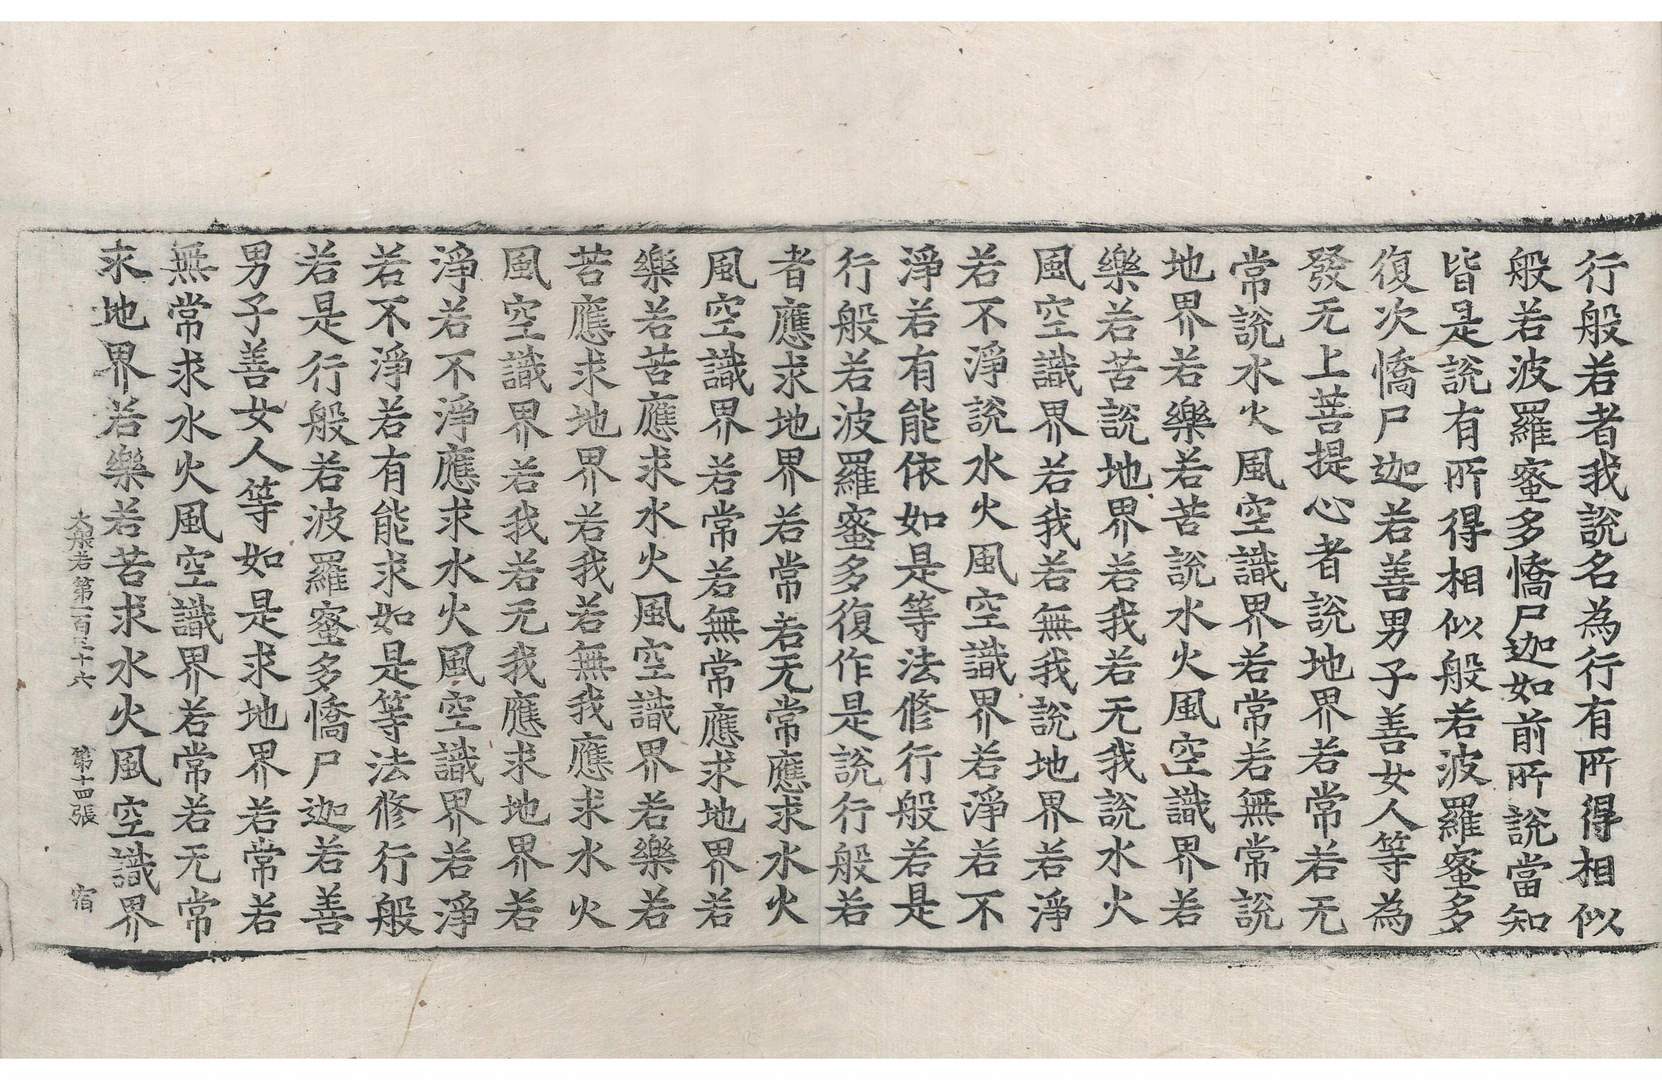 行般若者我說名為行有所得相似
般若波羅蜜多憍尸迦如前所說當知
皆是說有所得相似般若波羅蜜多
復次憍尸迦若善男子善女人等為
發无上菩提心者說地界若常若无
常說水火風空識界若常若無常說
地界若樂若苦說水火風空識界若
樂若苦說地界若我若无我說水火
風空識界若我若無我說地界若淨
若不淨說水火風空識界若淨若不
淨若有能依如是等法修行般若是
行般若波羅蜜多復作是說行般若
者應求地界若常若无常應求水火
風空識界若常若無常應求地界若
樂若苦應求水火風空識界若樂若
苦應求地界若我若無我應求水火
風空識界若我若无我應求地界若
淨若不淨應求水火風空識界若淨
若不淨若有能求如是等法修行般
若是行般若波羅蜜多憍尸迦若善
男子善女人等如是求地界若常若
無常求水火風空識界若常若无常
求地界若樂若苦求水火風空識界
大般若第一百三十六 第十四張 宿